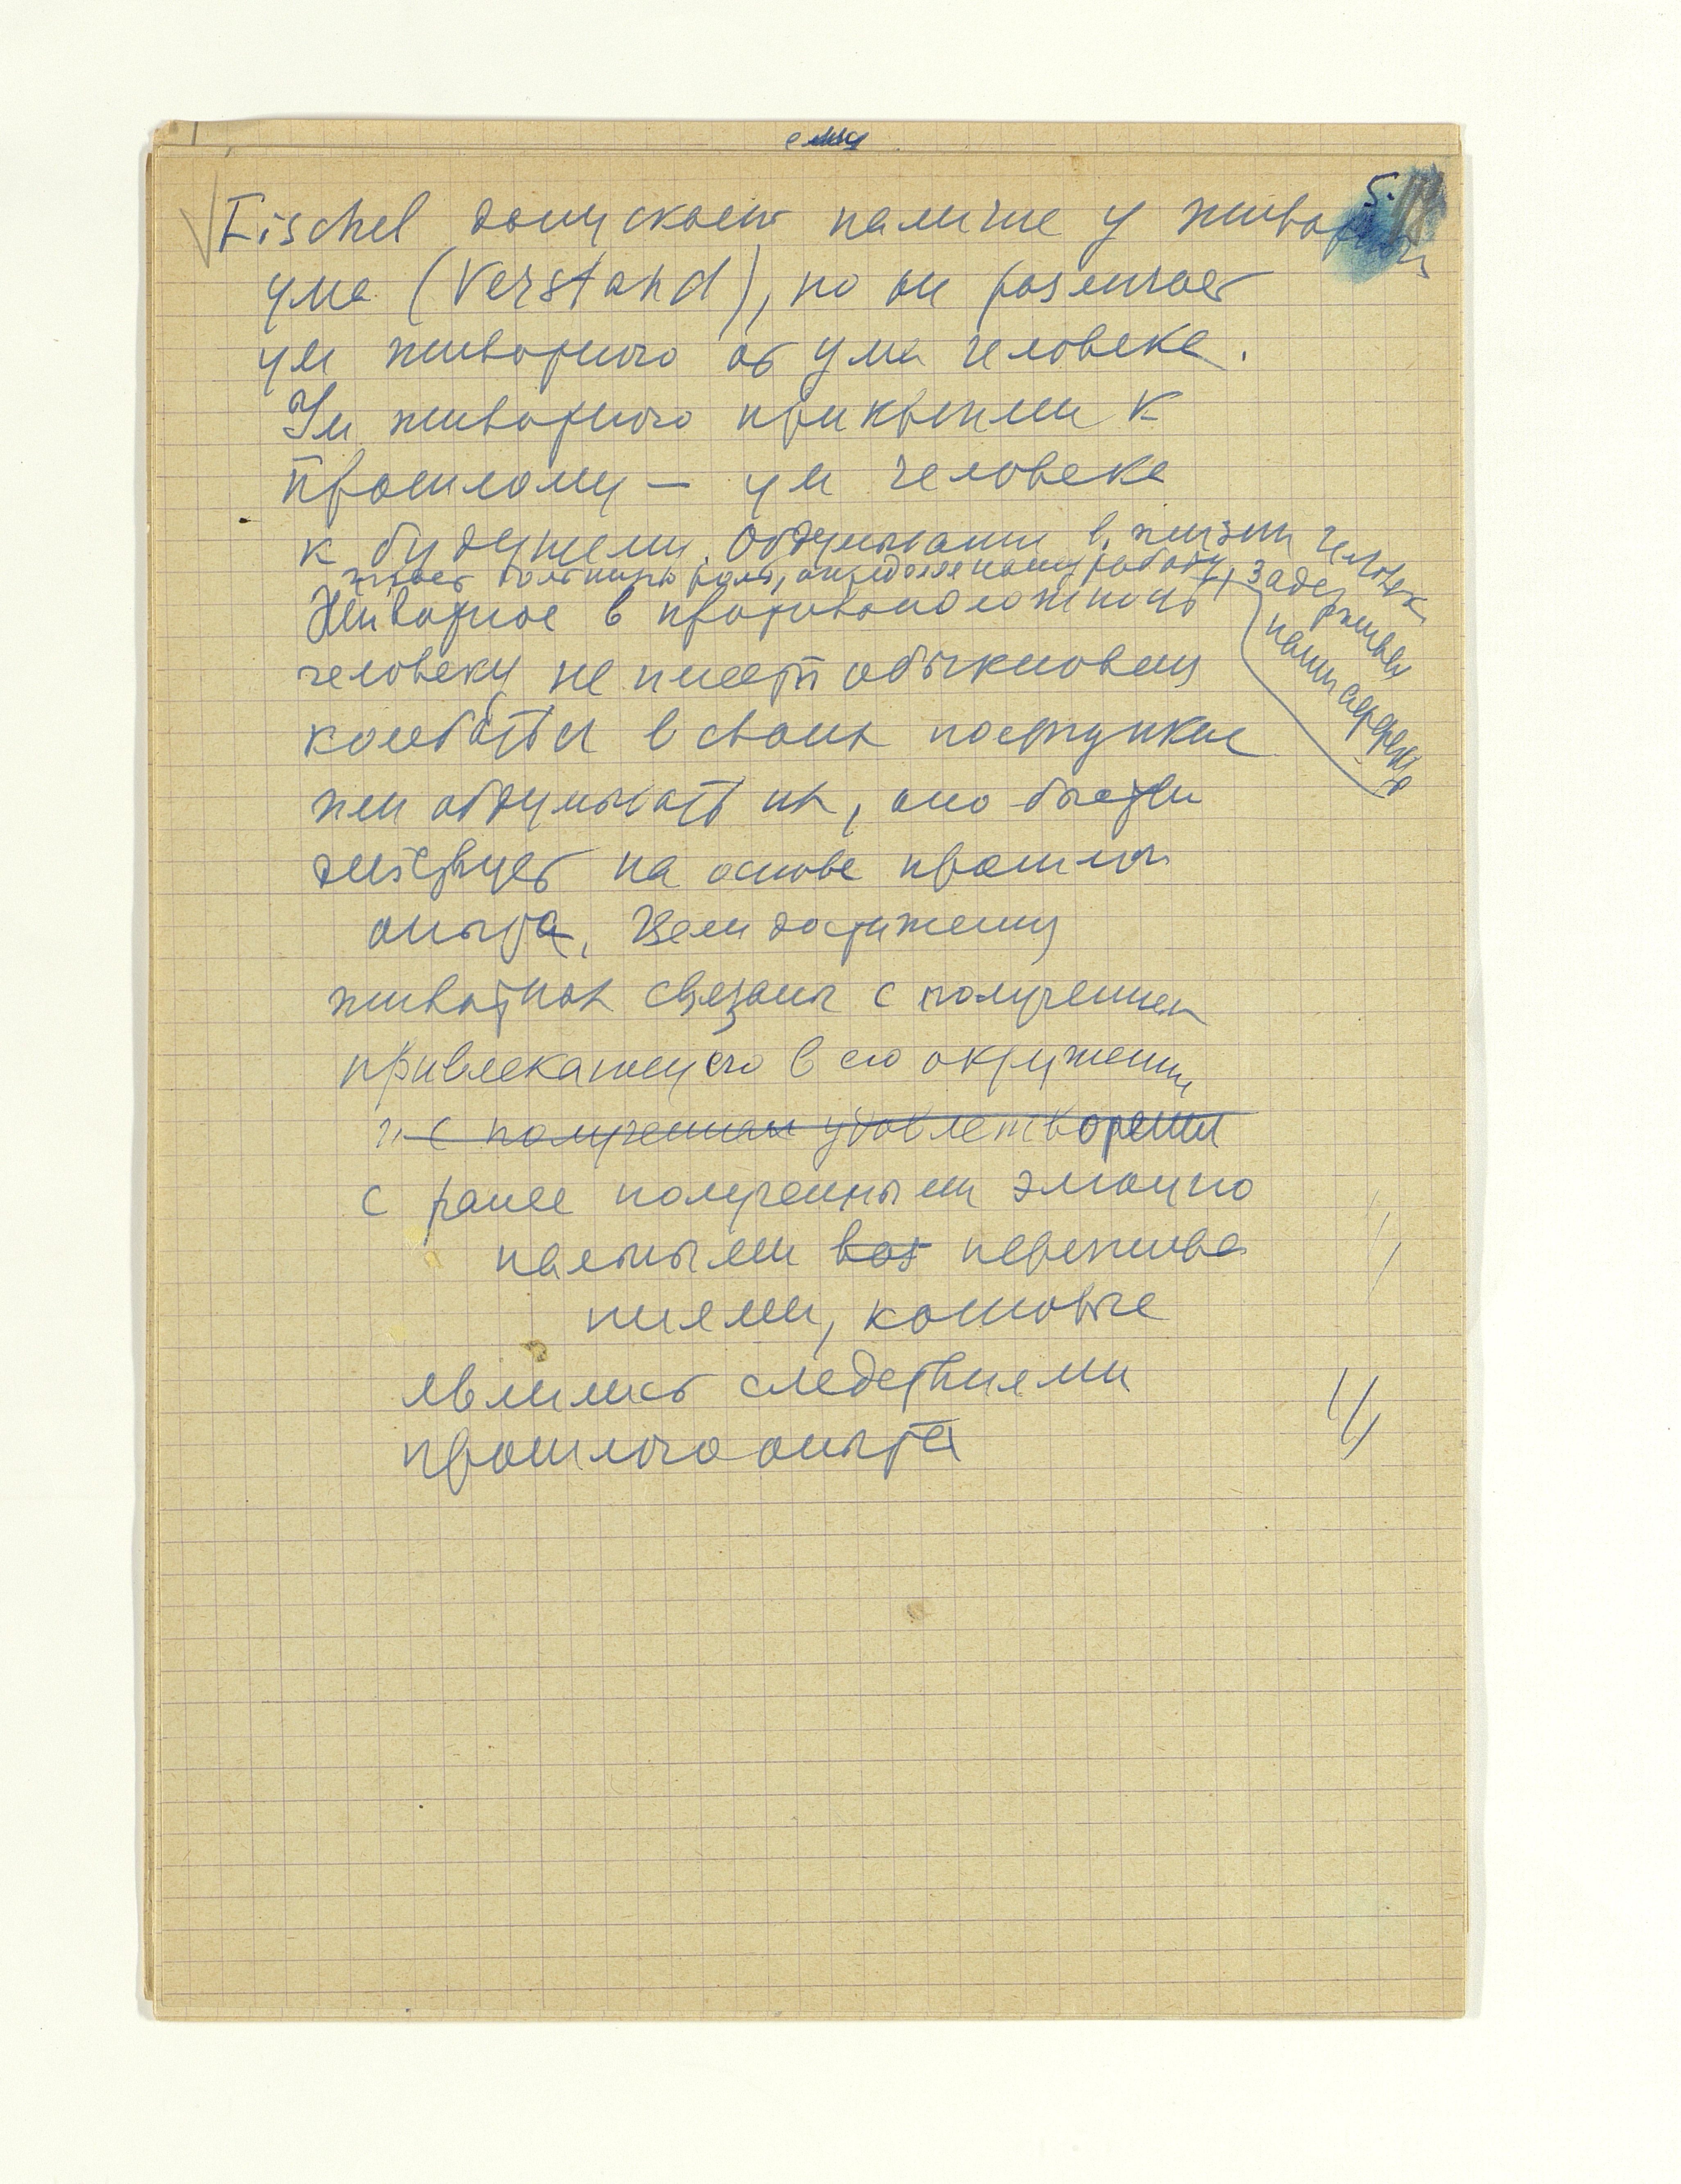 5.
Fischel допускает наличие у животных
ума (Verstand), но он различает
ум животного от ума человека.
Ум животного прикреплен к
прошлому — ум человека
к будущему. Обдумывание в жизни человека
играет большую роль, определенную работу, задерживая
наши аффекты
Животное в противоположность
человеку не имеет обыкновения
колебаться в своих поступках
или обдумывать их, оно быстро
действует на основе прошлого
опыта. Цели достижения
животных связаны с получением
привлекающего в его окружении
и с получением удовлетворения
с ранее полученными эмоцио
нальными воз пережива
ниями, которые
явились следствиями
прошлого опыта